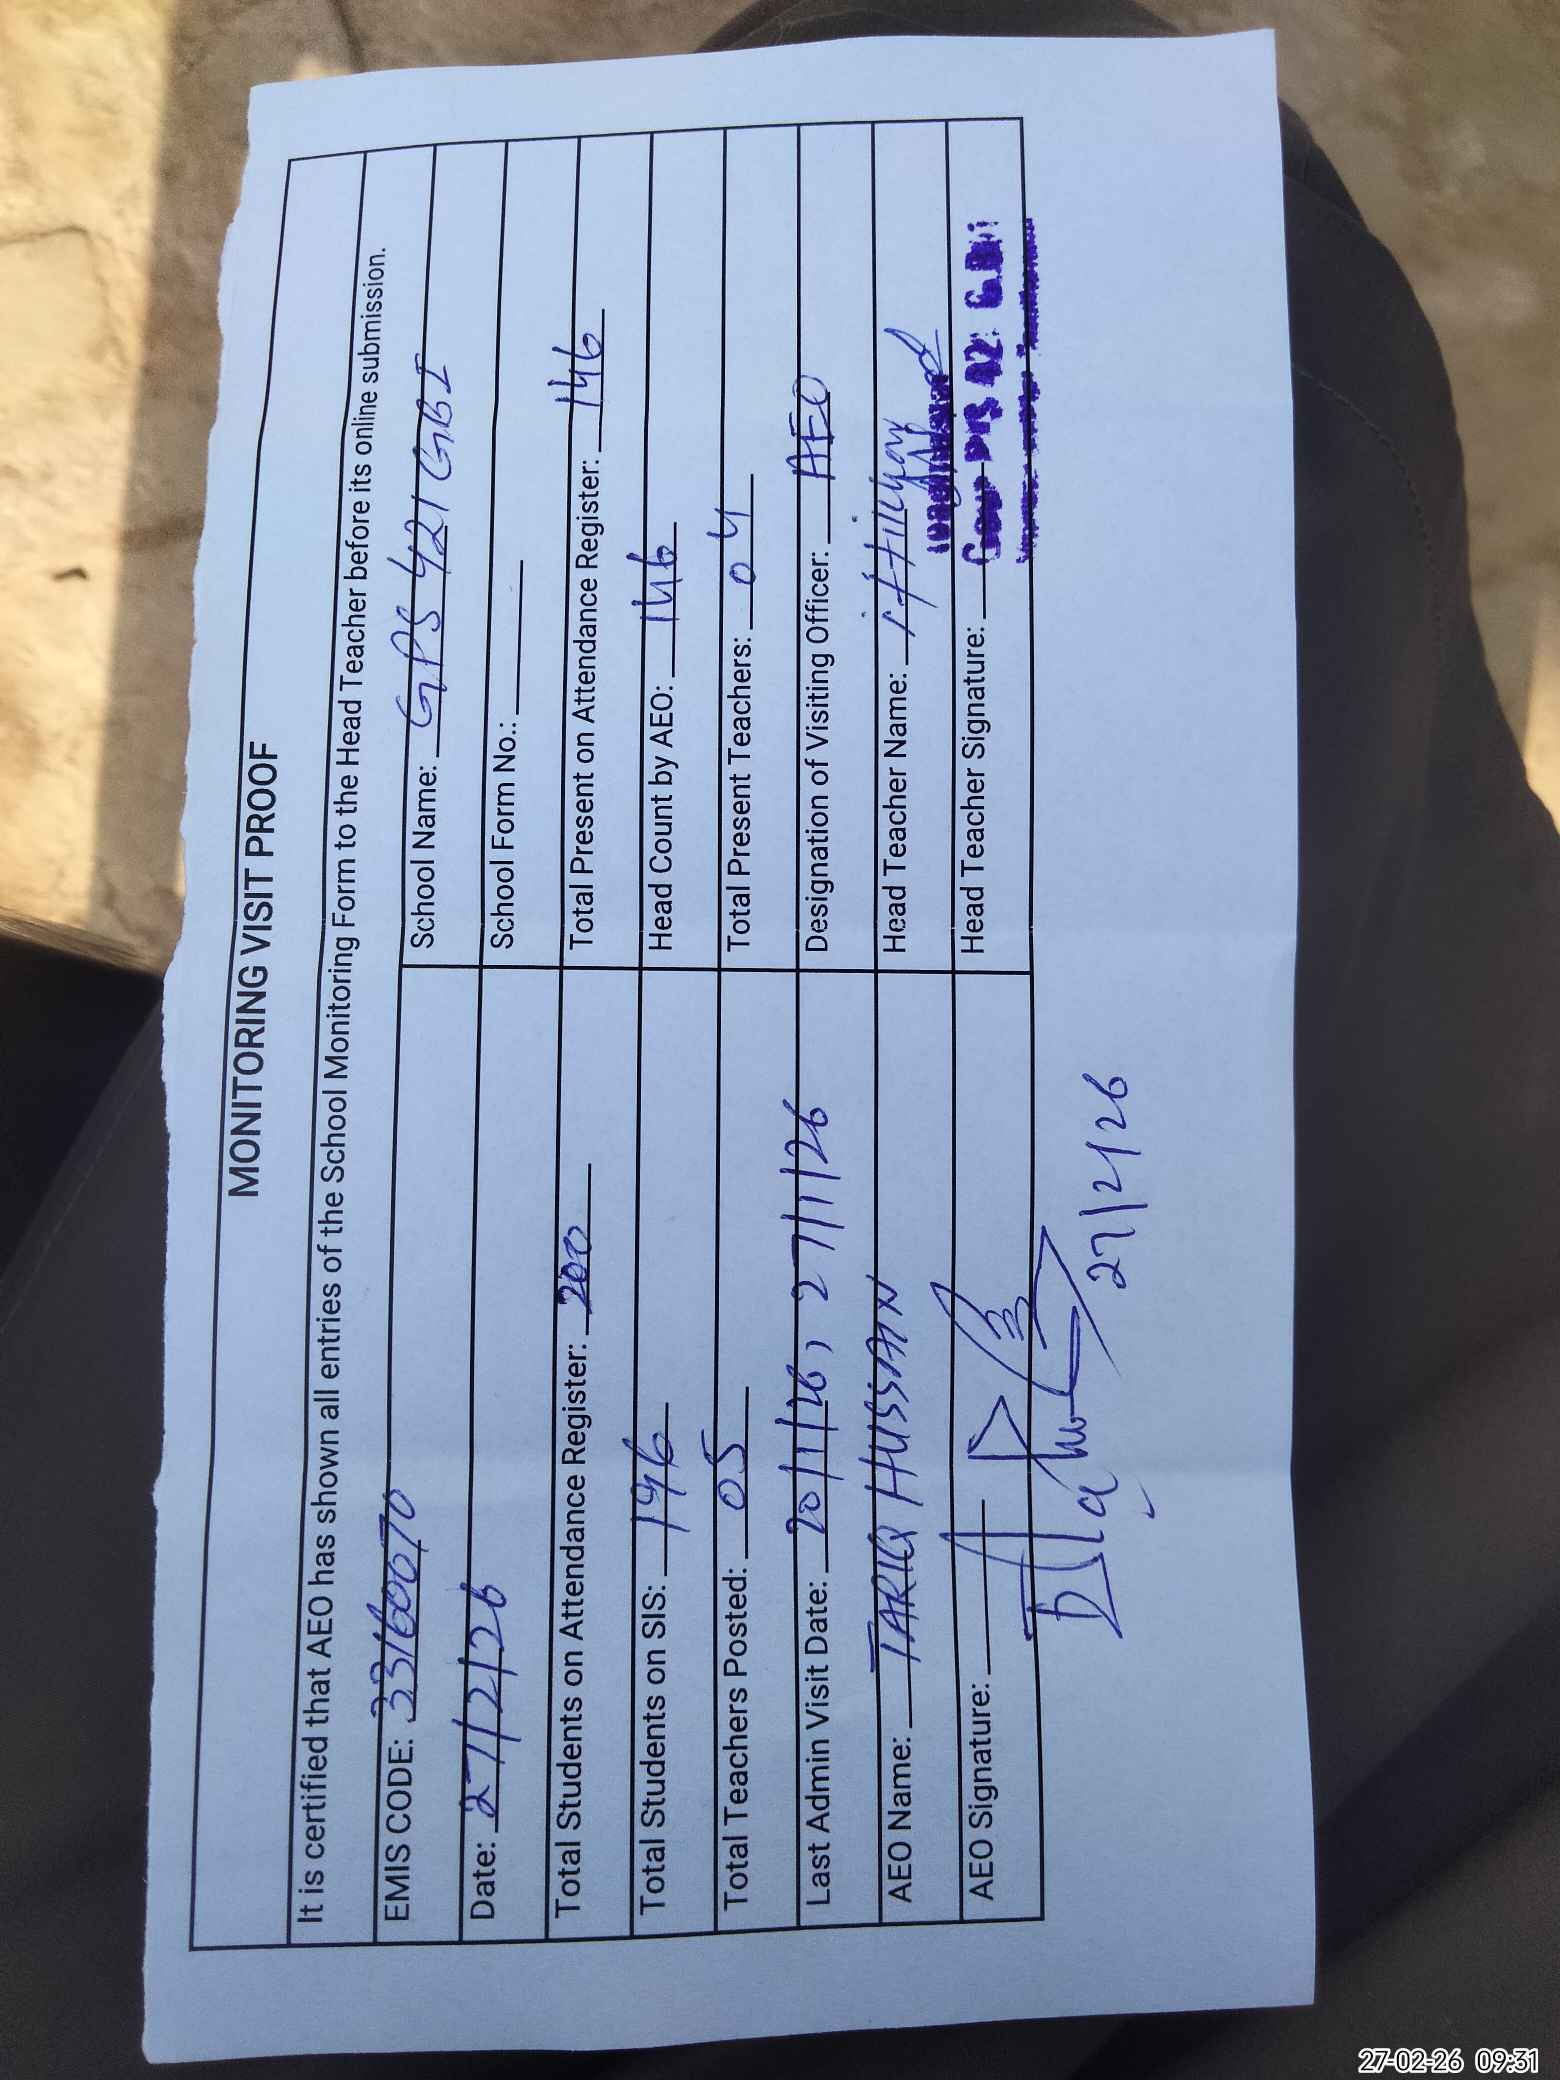 MONITORING VISIT PROOF
It is certified that AEO has shown all entries of the School Monitoring Form to the Head Teacher before its online submission.
EMIS CODE: 33160070
School Name: GPS 421 GBI
Date: 27/2/26
School Form No.:
Total Students on Attendance Register: 200
Total Present on Attendance Register: 146
Total Students on SIS: 196
Head Count by AEO: 146
Total Teachers Posted: 05
Total Present Teachers: 04
Last Admin Visit Date: 20/1/26, 27/1/26
Designation of Visiting Officer: AEO
AEO Name: TARIQ HUSSAIN
Head Teacher Name:
AEO Signature:
Head Teacher Signature:
27/2/26
27-02-26 09:31